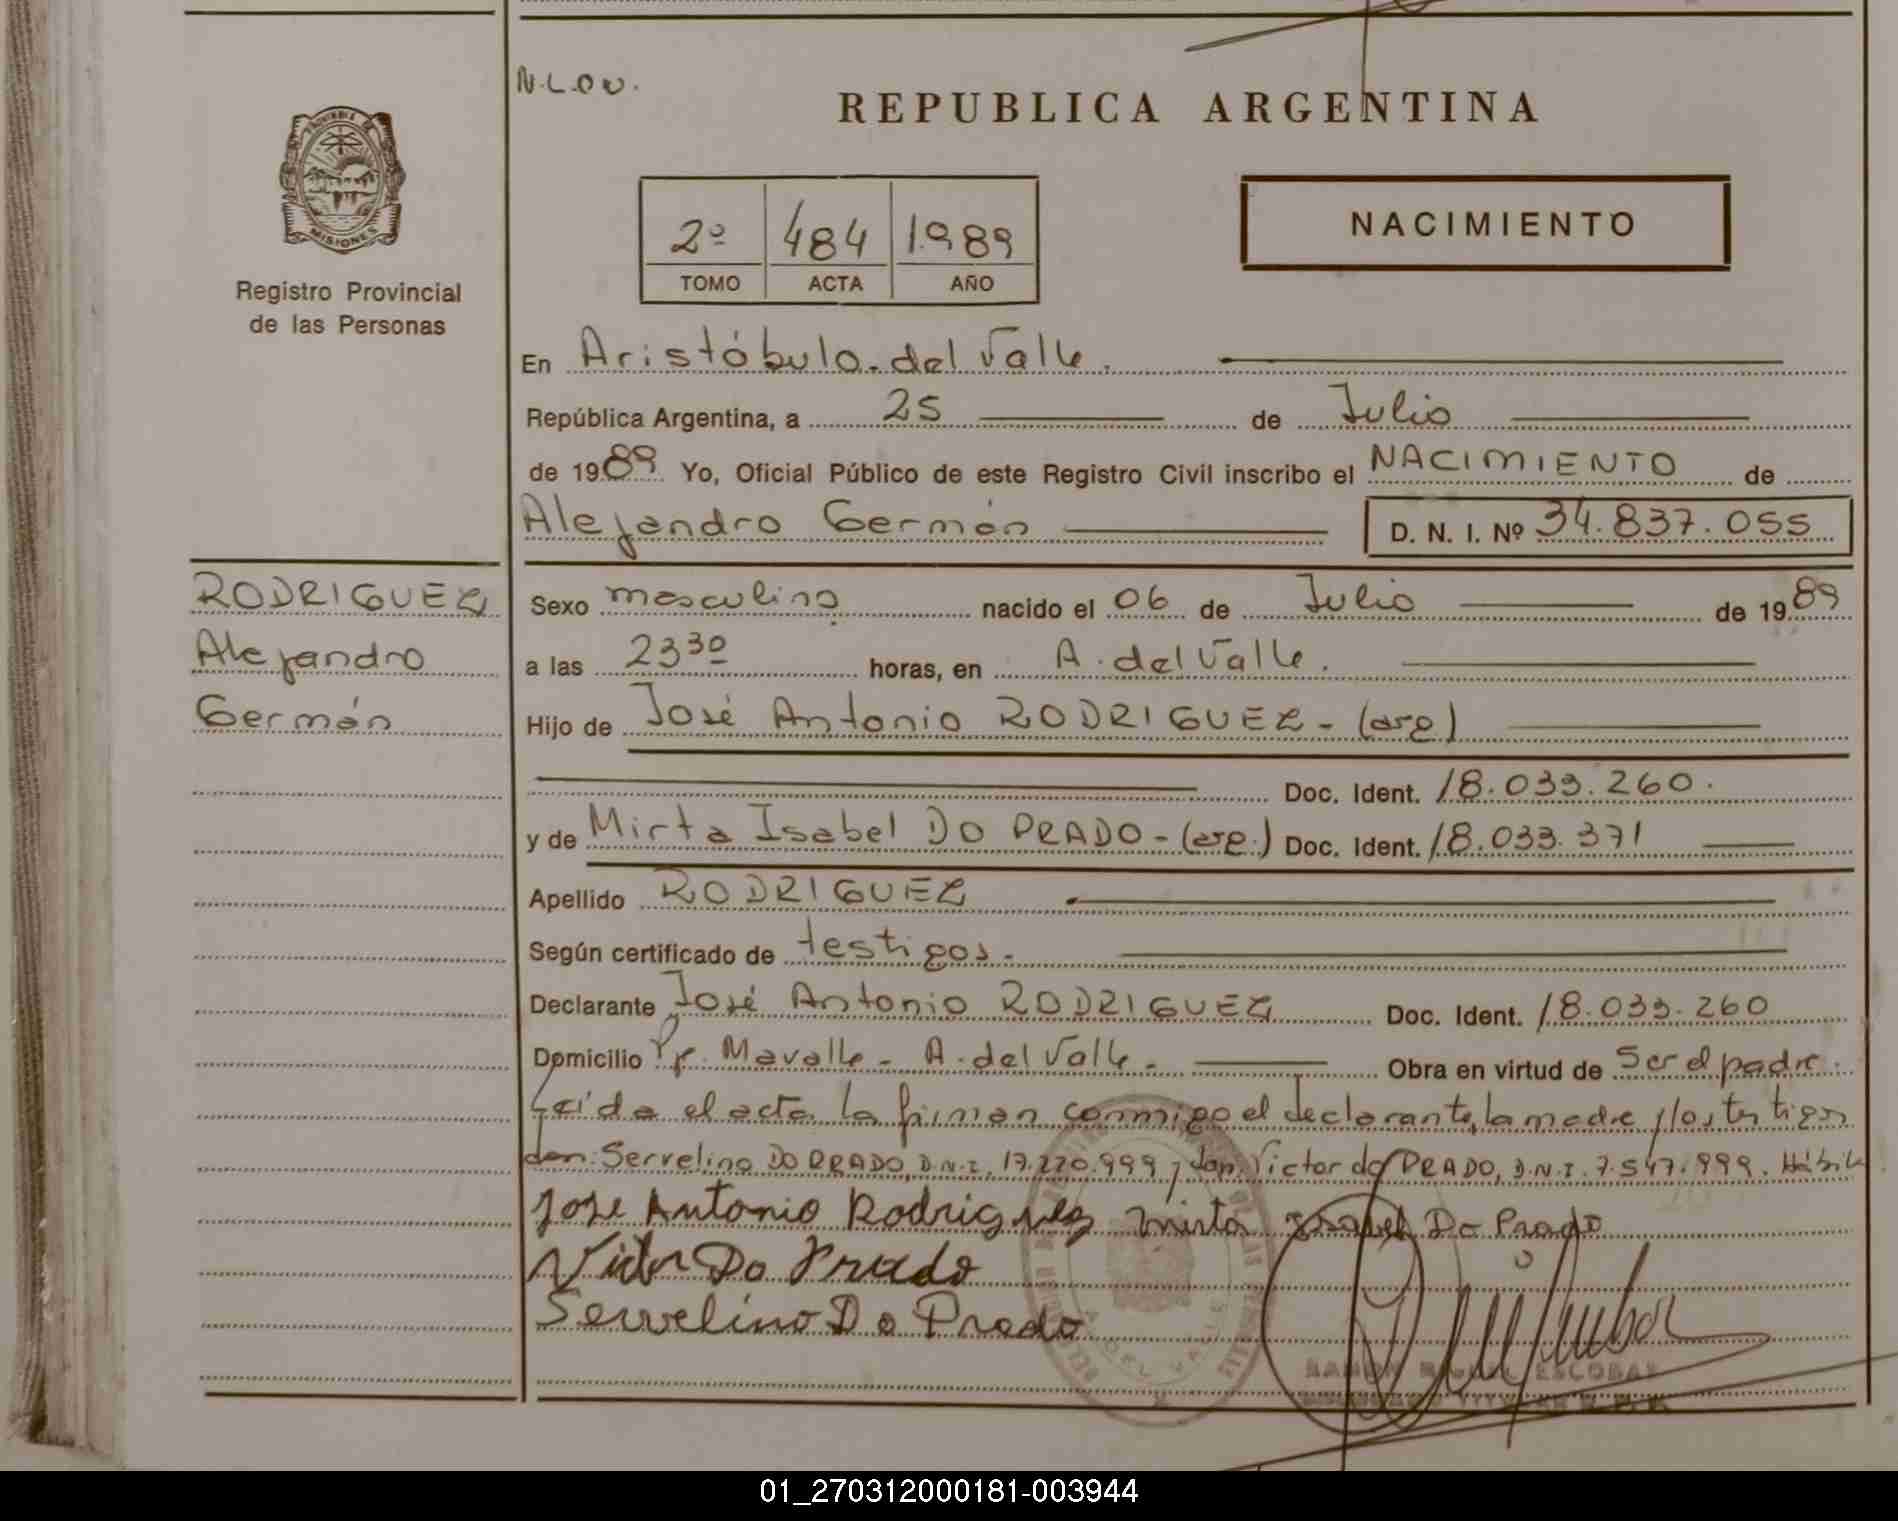 N.L.O.U.
REPUBLICA ARGENTINA
PROVINCIA DE
MISIONES
Registro Provincial
de las Personas
2º 484 1.989
TOMO ACTA AÑO
NACIMIENTO
En Aristóbulo del Valle.
República Argentina, a 25 de Julio
de 1989 Yo, Oficial Público de este Registro Civil inscribo el NACIMIENTO de
Alejandro Germán D. N. I. Nº 34.837.055
RODRIGUEZ
Alejandro
Germán
Sexo masculino nacido el 06 de Julio de 1989
a las 23 30 horas, en A. del Valle.
Hijo de José Antonio RODRIGUEZ - (arg)
Doc. Ident. 18.033.260.
y de Mirta Isabel DO PRADO - (arg.) Doc. Ident. 18.033.371
Apellido RODRIGUEZ
Según certificado de testigos.
Declarante José Antonio RODRIGUEZ Doc. Ident. 18.033.260
Domicilio Pje. Mavalle - A. del Valle. Obra en virtud de Ser el padre.
Leída el acta la firman conmigo el declarante, la madre y los testigos
don: Servelino DO PRADO, D.N.I. 17.220.999 y don Victor do PRADO, D.N.I. 7.547.999. Hábil
Jose Antonio Rodriguez Mirta Isabel Do Prado
Victor Do Prado
Servelino Do Prado
DEL VALLE
RAMON MIGUEL ESCOBAR
01_270312000181-003944